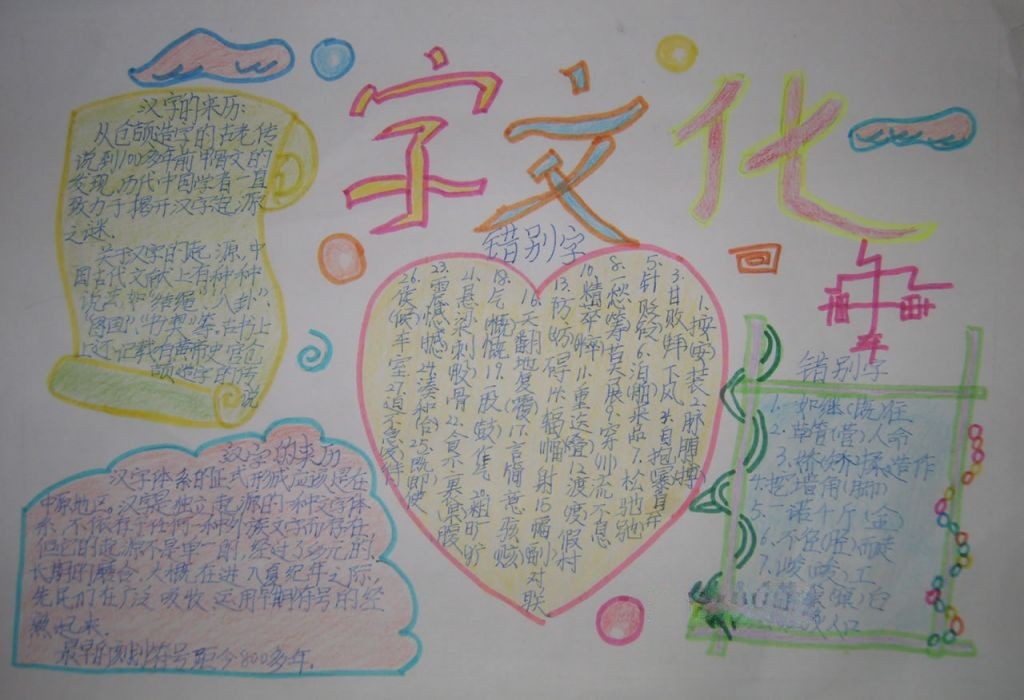 字文化
汉字的来历:
从仓颉造字的古老传
说到100多年前甲骨文的
发现,历代中国学者一直
致力于揭开汉字起源
之谜。
关于汉字的起源,中
国古代文献上有种种
说法,如"结绳""八卦"、
"图画"、"书契"等,古书上
还记载有黄帝史官仓
颉造字的传
说
汉字的来历
汉字体系的正式形成应该是在
中原地区。汉字是独立起源的一种文字体
系,不依存于任何一种外族文字而存在,
但它的起源不是单一的,经过了多元的、
长期的磨合,大概在进入夏纪年之际,
先民们在广泛吸收、运用早期符号的经
最早的刻划符号距今8000多年。
错别字
1.按(安)装2.脉膊(搏)
3.甘败拜下风4.自抱暴自弃
5.针贬砭6.泊舶来品7.松弛驰
8.一愁筹莫展9.穿川流不息
10.精粹11.重迭叠12.渡度假村
13.防妨碍14.幅辐射15.幅对联
16.天翻地复(覆)17.言简意骇赅
18.气(慨)概19.一股(鼓)作气
21.悬梁刺股骨22.食不裹果腹
23.震憾撼24.凑和(合)25.既即使
26.侯(候)车室27.迫不急及待
错别字
1.如继(既)往
2.草管(菅)人命
3.娇(矫)揉造作
4.挖墙角(脚)
5.一诺千斤(金)
6.不径(胫)而走
7.峻(竣)工